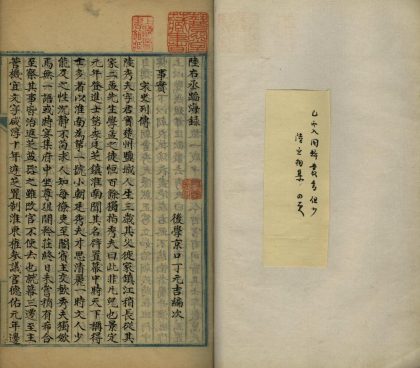 陸右丞蹈海錄
後學京口丁元吉編次
事實
宋史列傳
陸秀夫字君實楚州鹽城人生三歲其父徙家鎮江稍長從其
家二孟先生學孟之徒恒百餘獨指秀夫曰此非凡兒也景定
元年登進士第李庭芝鎮淮南聞其名辟置幕中時天下稱得
士多者以淮南為第一號小朝廷秀夫才思清麗一時文人少
能及之性沉靜不苟求人知每僚吏至閤賓主交歡秀夫獨斂
焉無一語或時宴集府中坐尊俎間矜莊終日未嘗稍有希合
至察其事皆治庭芝益器之雖改官不使去己就幕三遷至主
管機宜文字咸淳十年庭芝置制淮東擢參議官德佑元年邊